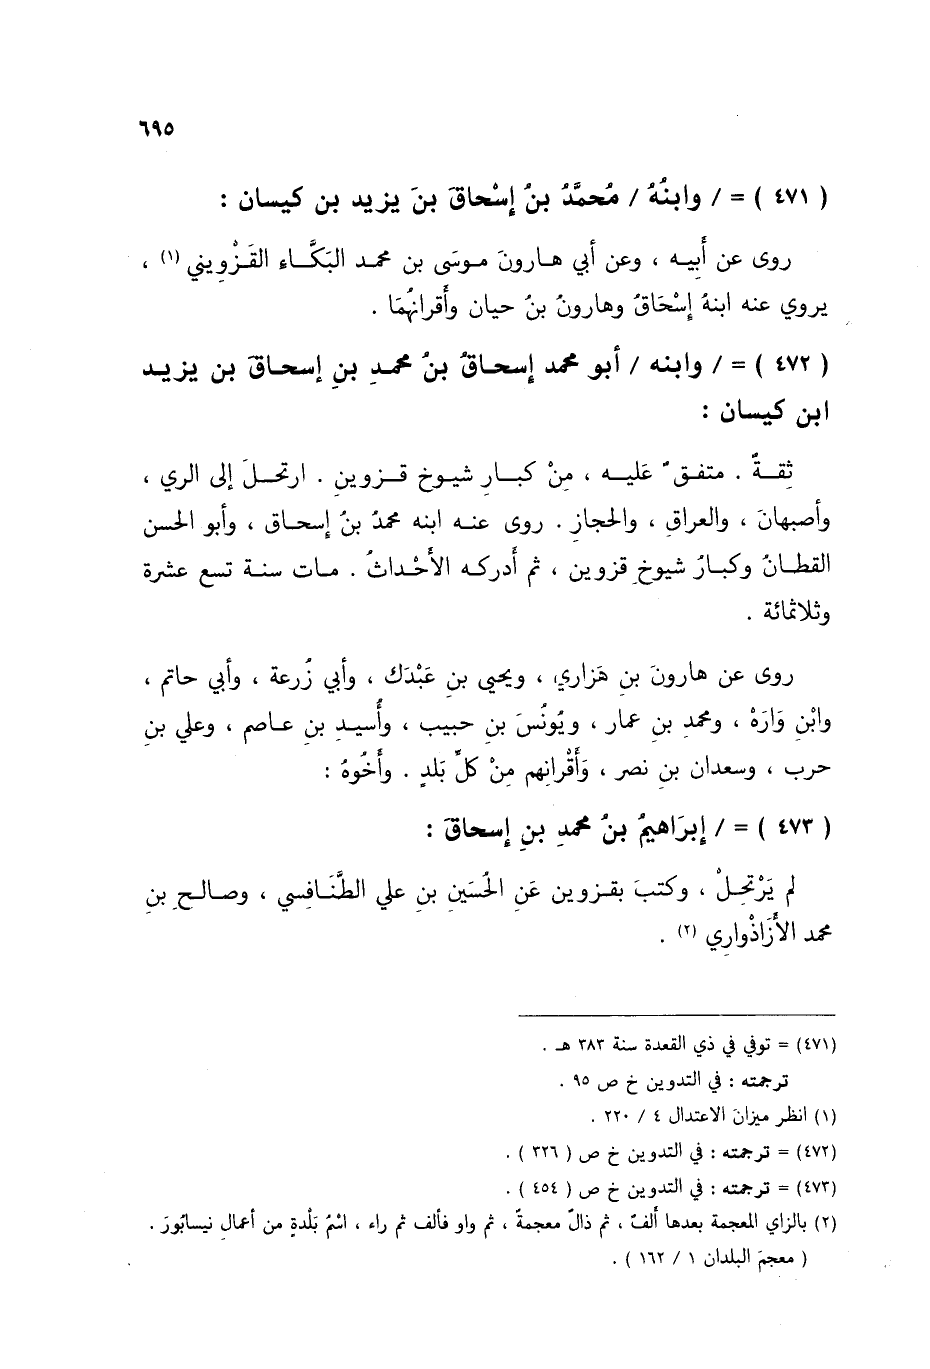 ٦٩٥
( ٤٧١ ) = / وابنُهُ / مُحمَّدُ بنُ إسْحاقَ بنَ يزيد بن كيسان :
روى عن أَبيه ، وعن أبي هارونَ موسَى بن محمد البَكَّاء القَزْويني (١) ،
يروي عنه ابنهُ إسْحَاقُ وهارونُ بنُ حيان وأَقرانُهُمَا .
( ٤٧٢ ) = / وابنه / أبو محمد إسحاقُ بنُ محمدِ بنِ إسحاقَ بن يزيد
ابن كيسان :
ثِقةٌ . متفقٌ عَليه ، مِنْ كبارِ شيوخِ قزوين . ارتحلَ إلى الري ،
وأصبهانَ ، والعراقِ ، والحجازِ . روى عنه ابنه محمدُ بنُ إسحاق ، وأبو الحسن
القطانُ وكبارُ شيوخِ قزوين ، ثم أَدركه الأَحْداثُ . مات سنة تسع عشرة
وثلاثمائة .
روى عن هارونَ بنِ هَزاري ، ويحيى بنِ عَبْدَك ، وأبي زُرعة ، وأبي حاتم ،
وابْنِ وَارَهْ ، ومحمدِ بن عمار ، ويُونُسَ بنِ حبيب ، وأُسيدِ بنِ عاصم ، وعلي بنِ
حرب ، وسعدان بنِ نصر ، وَأَقْرانِهم مِنْ كلِّ بَلدٍ . وأَخُوهُ :
( ٤٧٣ ) = / إبرَاهيمُ بنُ محمدِ بنِ إسحاقَ :
لم يَرْتحِلْ ، وكتبَ بقزوين عَنِ الحُسَينِ بنِ علي الطَّنَافسي ، وصالحِ بنِ
محمد الأَزَاذْواري (٢) .
(٤٧١) = توفي في ذي القعدة سنة ٣٨٣ هـ .
ترجمته : في التدوين خ ص ٩٥ .
(١) انظر ميزانَ الاعتدال ٤ / ٢٢٠ .
(٤٧٢) = ترجمته : في التدوين خ ص ( ٣٢٦ ) .
(٤٧٣) = ترجمته : في التدوين خ ص ( ٤٥٤ ) .
(٢) بالزاي المعجمة بعدها أَلفٌ ، ثم ذالٌ معجمةٌ ، ثم واو فألف ثم راء ، اسْمُ بَلْدةٍ من أعمالِ نيسابُورَ .
( معجمَ البلدان ١ / ١٦٢ ) .